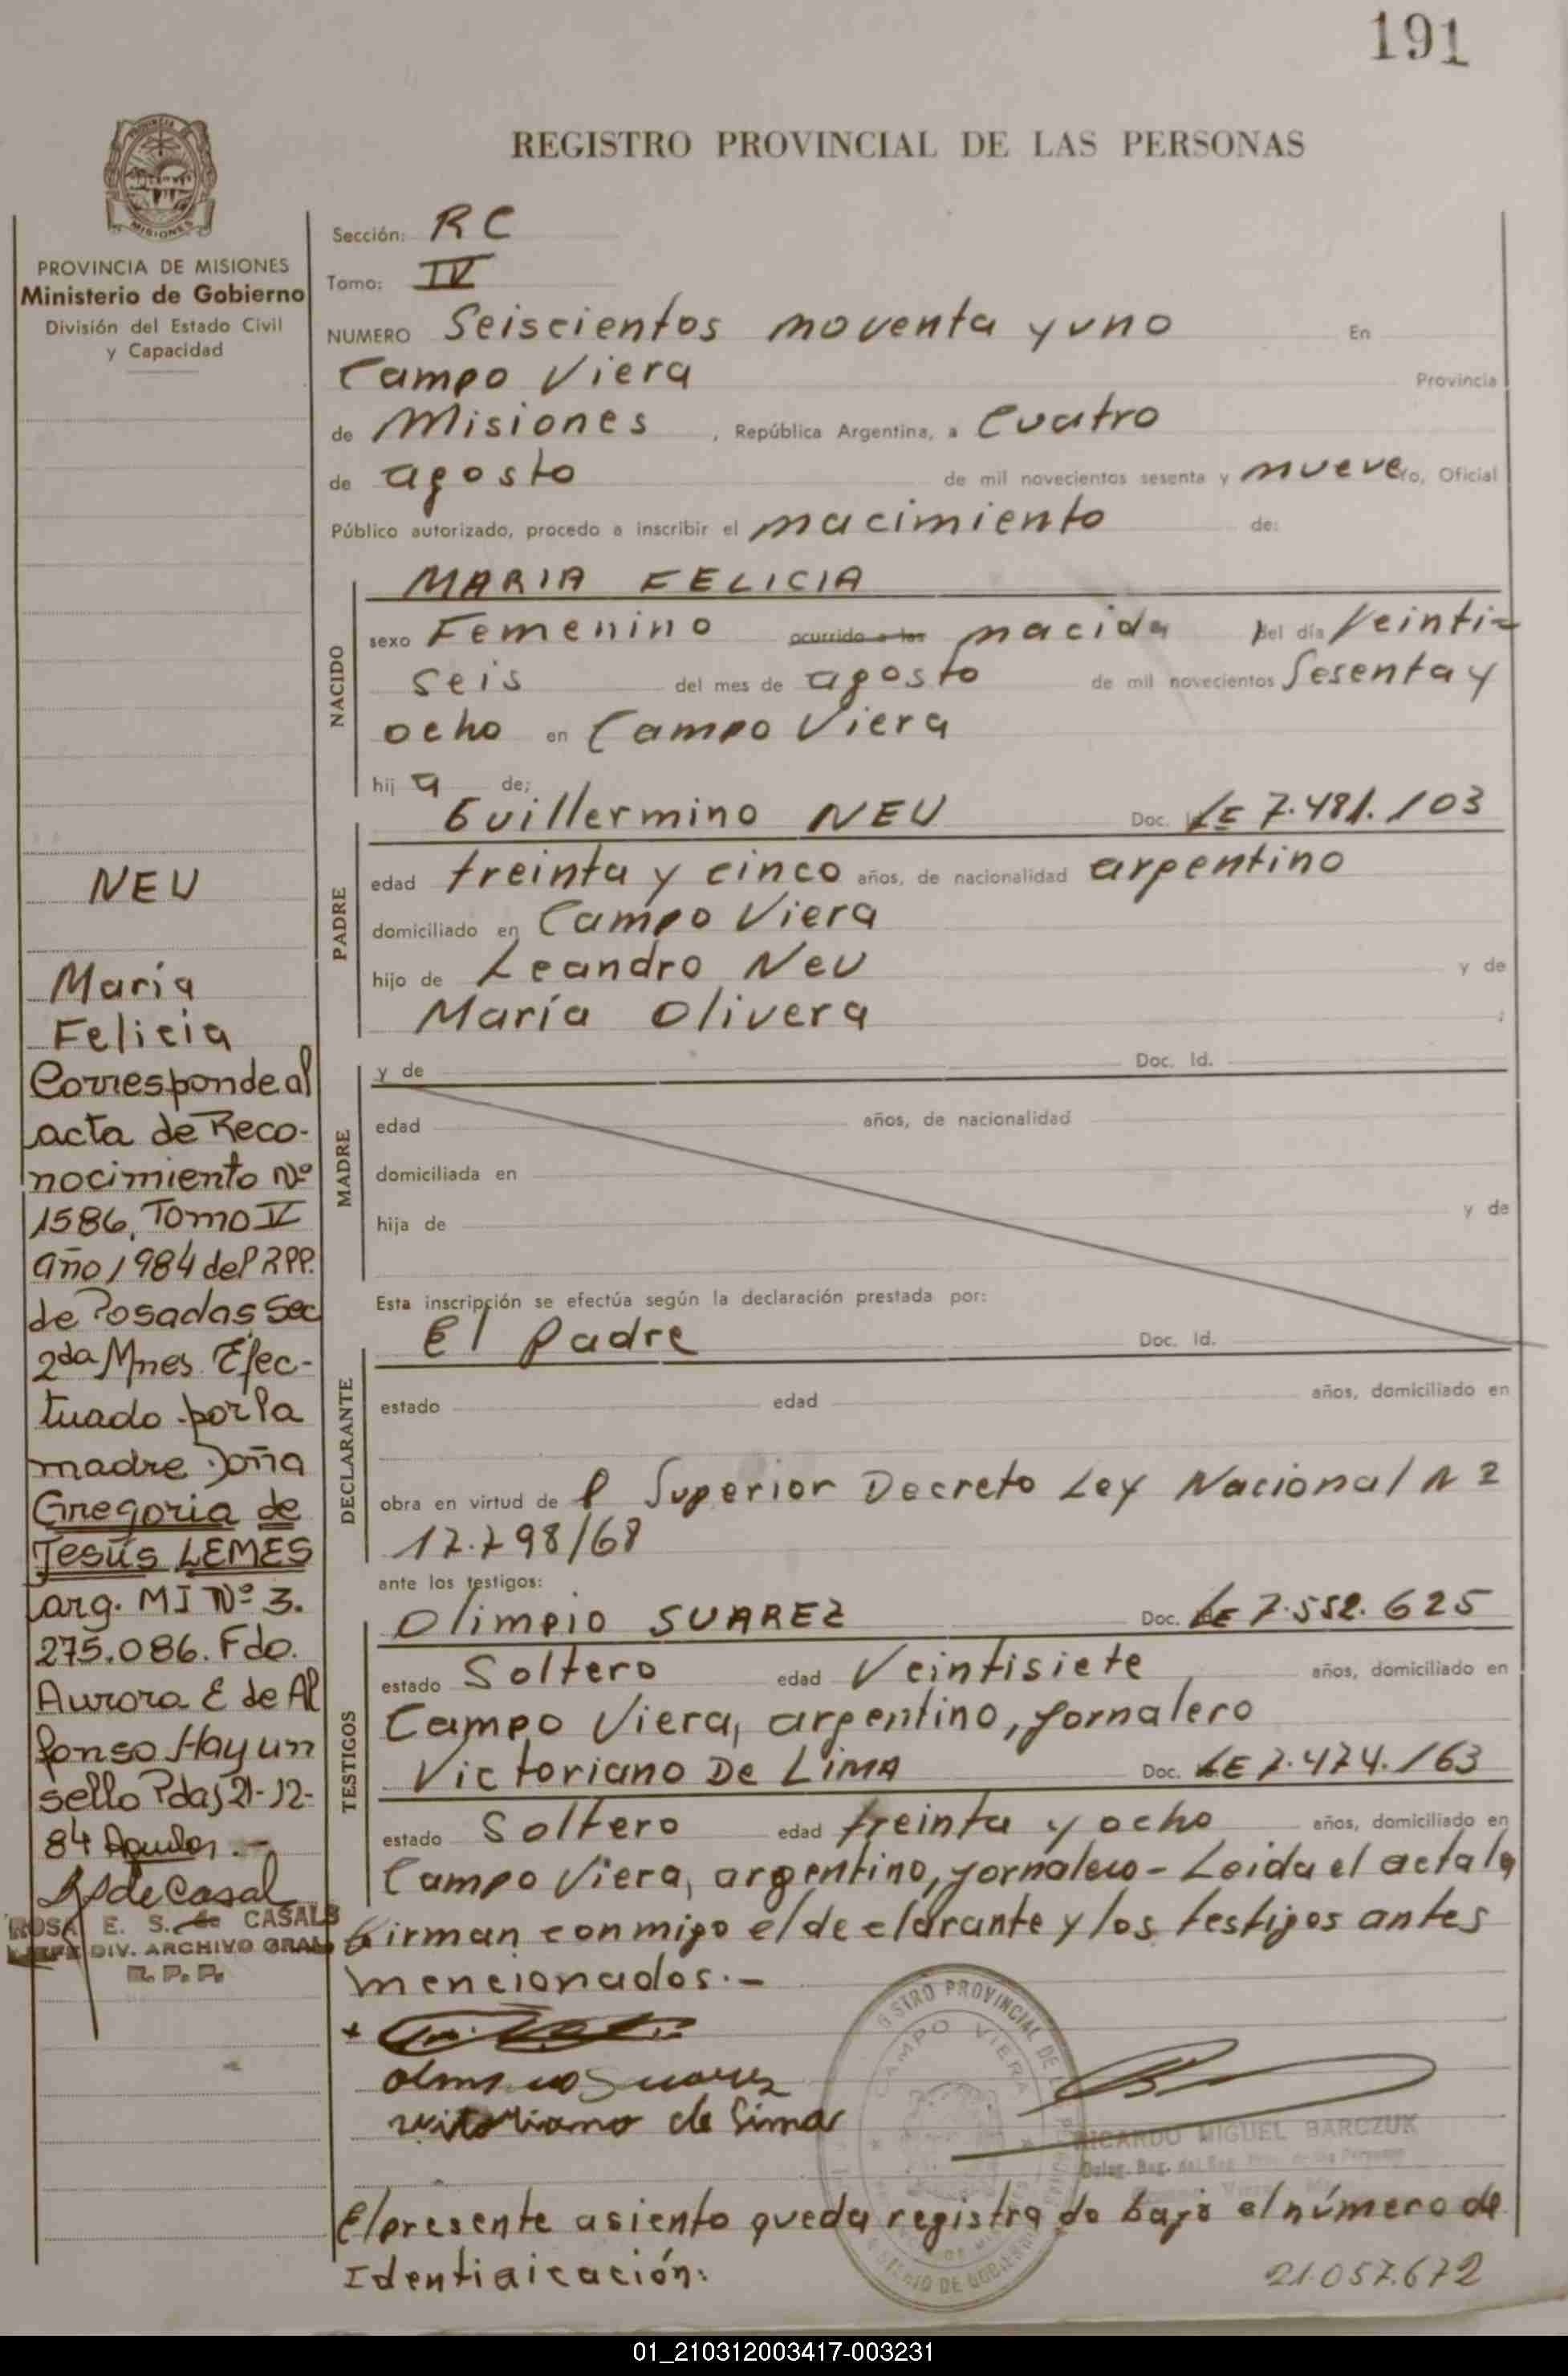 191
REGISTRO PROVINCIAL DE LAS PERSONAS
MISIONES
PROVINCIA DE MISIONES
Ministerio de Gobierno
División del Estado Civil
y Capacidad
NEU
María
Felicia
Corresponde al
acta de Reco-
nocimiento Nº
1586, Tomo IV
año 1984 del RPP.
de Posadas Sec
2da Mnes. Efec-
tuado por la
madre Doña
Gregoria de
Jesús LEMES
arg. MI Nº 3.
275.086. Fdo.
Aurora E de Al
fonso Hay un
sello Pdas 21-12-
84
ROSA E. S. de CASALS
JEFE DIV. ARCHIVO GRAL
R. P. P.
Sección: RC
Tomo: IV
NUMERO Seiscientos noventa y uno En
Campo Viera Provincia
de Misiones, República Argentina, a Cuatro
de agosto de mil novecientos sesenta y nueve yo, Oficial
Público autorizado, procedo a inscribir el nacimiento de:
NACIDO
MARIA FELICIA
sexo Femenino ocurrido a las nacida del día Veinti-
seis del mes de agosto de mil novecientos Sesenta y
ocho en Campo Viera
hij a de;
PADRE
Guillermino NEU Doc. LE 7.481.103
edad treinta y cinco años, de nacionalidad argentino
domiciliado en Campo Viera
hijo de Leandro Neu y de
María Olivera ;
MADRE
y de Doc. Id.
edad años, de nacionalidad
domiciliada en
hija de y de
Esta inscripción se efectúa según la declaración prestada por:
DECLARANTE
El Padre Doc. Id.
estado edad años, domiciliado en
obra en virtud de l Superior Decreto Ley Nacional Nº
17.798/68
ante los testigos:
TESTIGOS
Olimpio SUAREZ Doc. LE 7.552.625
estado Soltero edad Veintisiete años, domiciliado en
Campo Viera, argentino, jornalero
Victoriano De LiMA Doc. LE 7.474.163
estado Soltero edad treinta y ocho años, domiciliado en
Campo Viera, argentino, jornalero- Leida el acta la
firman conmigo el declarante y los testigos antes
mencionados.-
REGISTRO PROVINCIAL DE
CAMPO VIERA
RICARDO MIGUEL BARCZUK
El presente asiento queda registrado bajo el número de
Identiaicación: 21.057.672
01_210312003417-003231